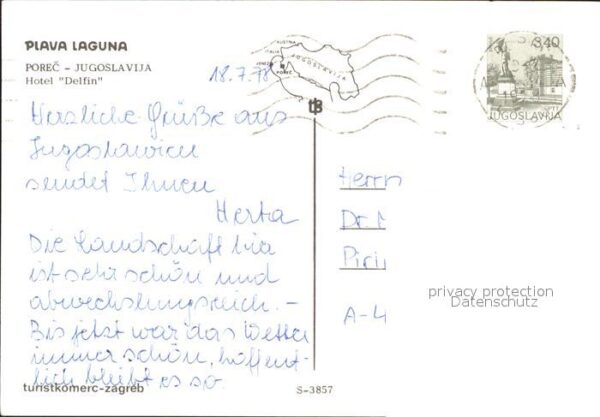 PLAVA LAGUNA
POREČ – JUGOSLAVIJA
Hotel "Delfin"
18.7.78
AUSTRIA
ITALIA
JUGOSLAVIJA
POREČ
3,40
JUGOSLAVIJA
Herzliche Grüße aus
Jugoslawien
sendet Ihnen
Herta
Die Landschaft hier
ist sehr schön und
abwechslungsreich. –
Bis jetzt war das Wetter
immer schön, hoffent-
lich bleibt es so.
Herrn
Dr.
A-4
privacy protection
Datenschutz
turistkomerc-zagreb
S-3857